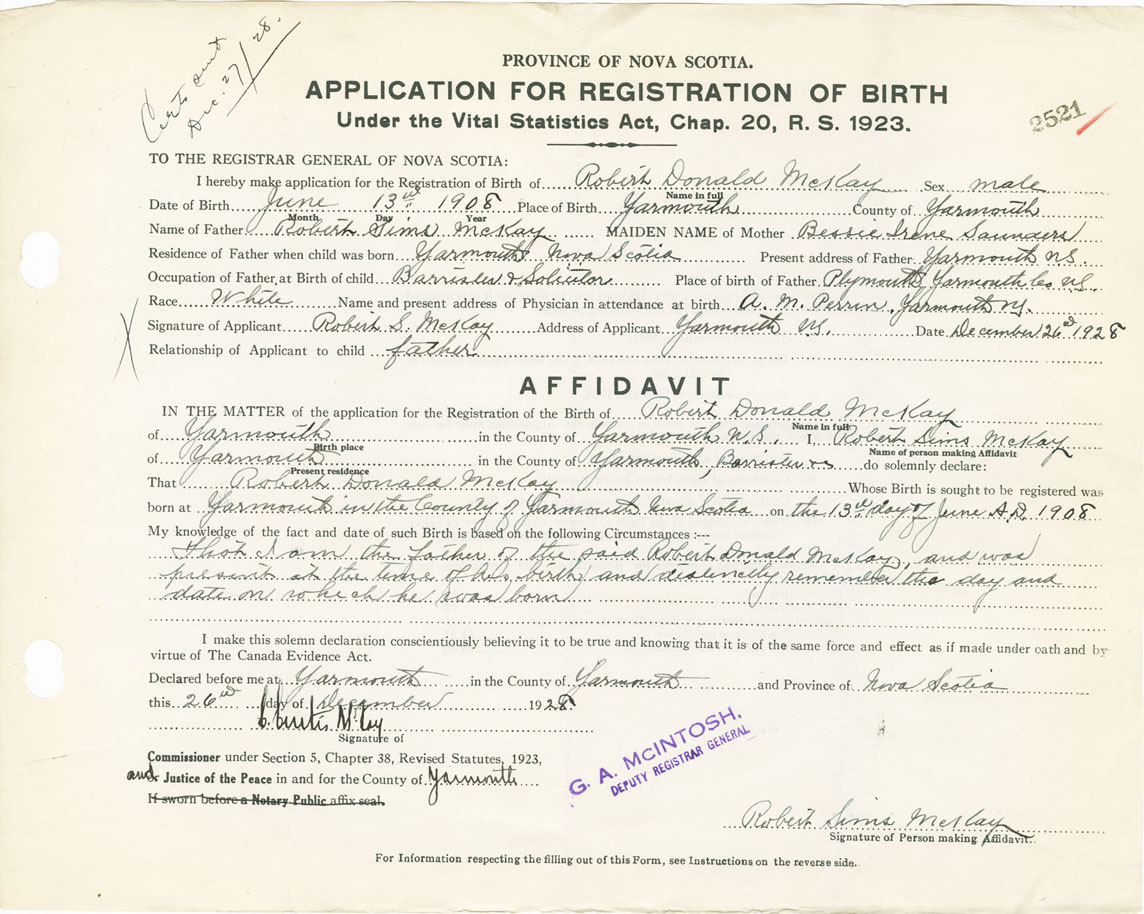 Certs sent
Dec. 27/28.
PROVINCE OF NOVA SCOTIA.
APPLICATION FOR REGISTRATION OF BIRTH
Under the Vital Statistics Act, Chap. 20, R. S. 1923.
2521
TO THE REGISTRAR GENERAL OF NOVA SCOTIA:
I hereby make application for the Registration of Birth of Robert Donald McKay Sex male
Name in full
Date of Birth June 13th 1908 Place of Birth Yarmouth County of Yarmouth
Month Day Year
Name of Father Robert Sims McKay MAIDEN NAME of Mother Bessie Irene Saunders
Residence of Father when child was born Yarmouth Nova Scotia Present address of Father Yarmouth N.S.
Occupation of Father at Birth of child Barrister & Solicitor Place of birth of Father Plymouth, Yarmouth Co N.S.
Race White Name and present address of Physician in attendance at birth A. M. Perrin, Yarmouth N.S.
X Signature of Applicant Robert S. McKay Address of Applicant Yarmouth N.S. Date December 26th 1928
Relationship of Applicant to child father
AFFIDAVIT
IN THE MATTER of the application for the Registration of the Birth of Robert Donald McKay
Name in full
of Yarmouth in the County of Yarmouth N.S. I, Robert Sims McKay
Birth place Name of person making Affidavit
of Yarmouth in the County of Yarmouth, Barrister do solemnly declare:
Present residence
That Robert Donald McKay Whose Birth is sought to be registered was
born at Yarmouth in the County of Yarmouth Nova Scotia on the 13th day of June A.D. 1908
My knowledge of the fact and date of such Birth is based on the following Circumstances :---
That I am the father of the said Robert Donald McKay, and was
present at the time of his birth and distinctly remember the day and
date on which he was born
I make this solemn declaration conscientiously believing it to be true and knowing that it is of the same force and effect as if made under oath and by
virtue of The Canada Evidence Act.
Declared before me at Yarmouth in the County of Yarmouth and Province of Nova Scotia
this 26th day of December 1928
Signature of
Commissioner under Section 5, Chapter 38, Revised Statutes, 1923,
and Justice of the Peace in and for the County of Yarmouth
If sworn before a Notary Public affix seal.
G. A. McINTOSH,
DEPUTY REGISTRAR GENERAL
Robert Sims McKay
Signature of Person making Affidavit.
For Information respecting the filling out of this Form, see Instructions on the reverse side.